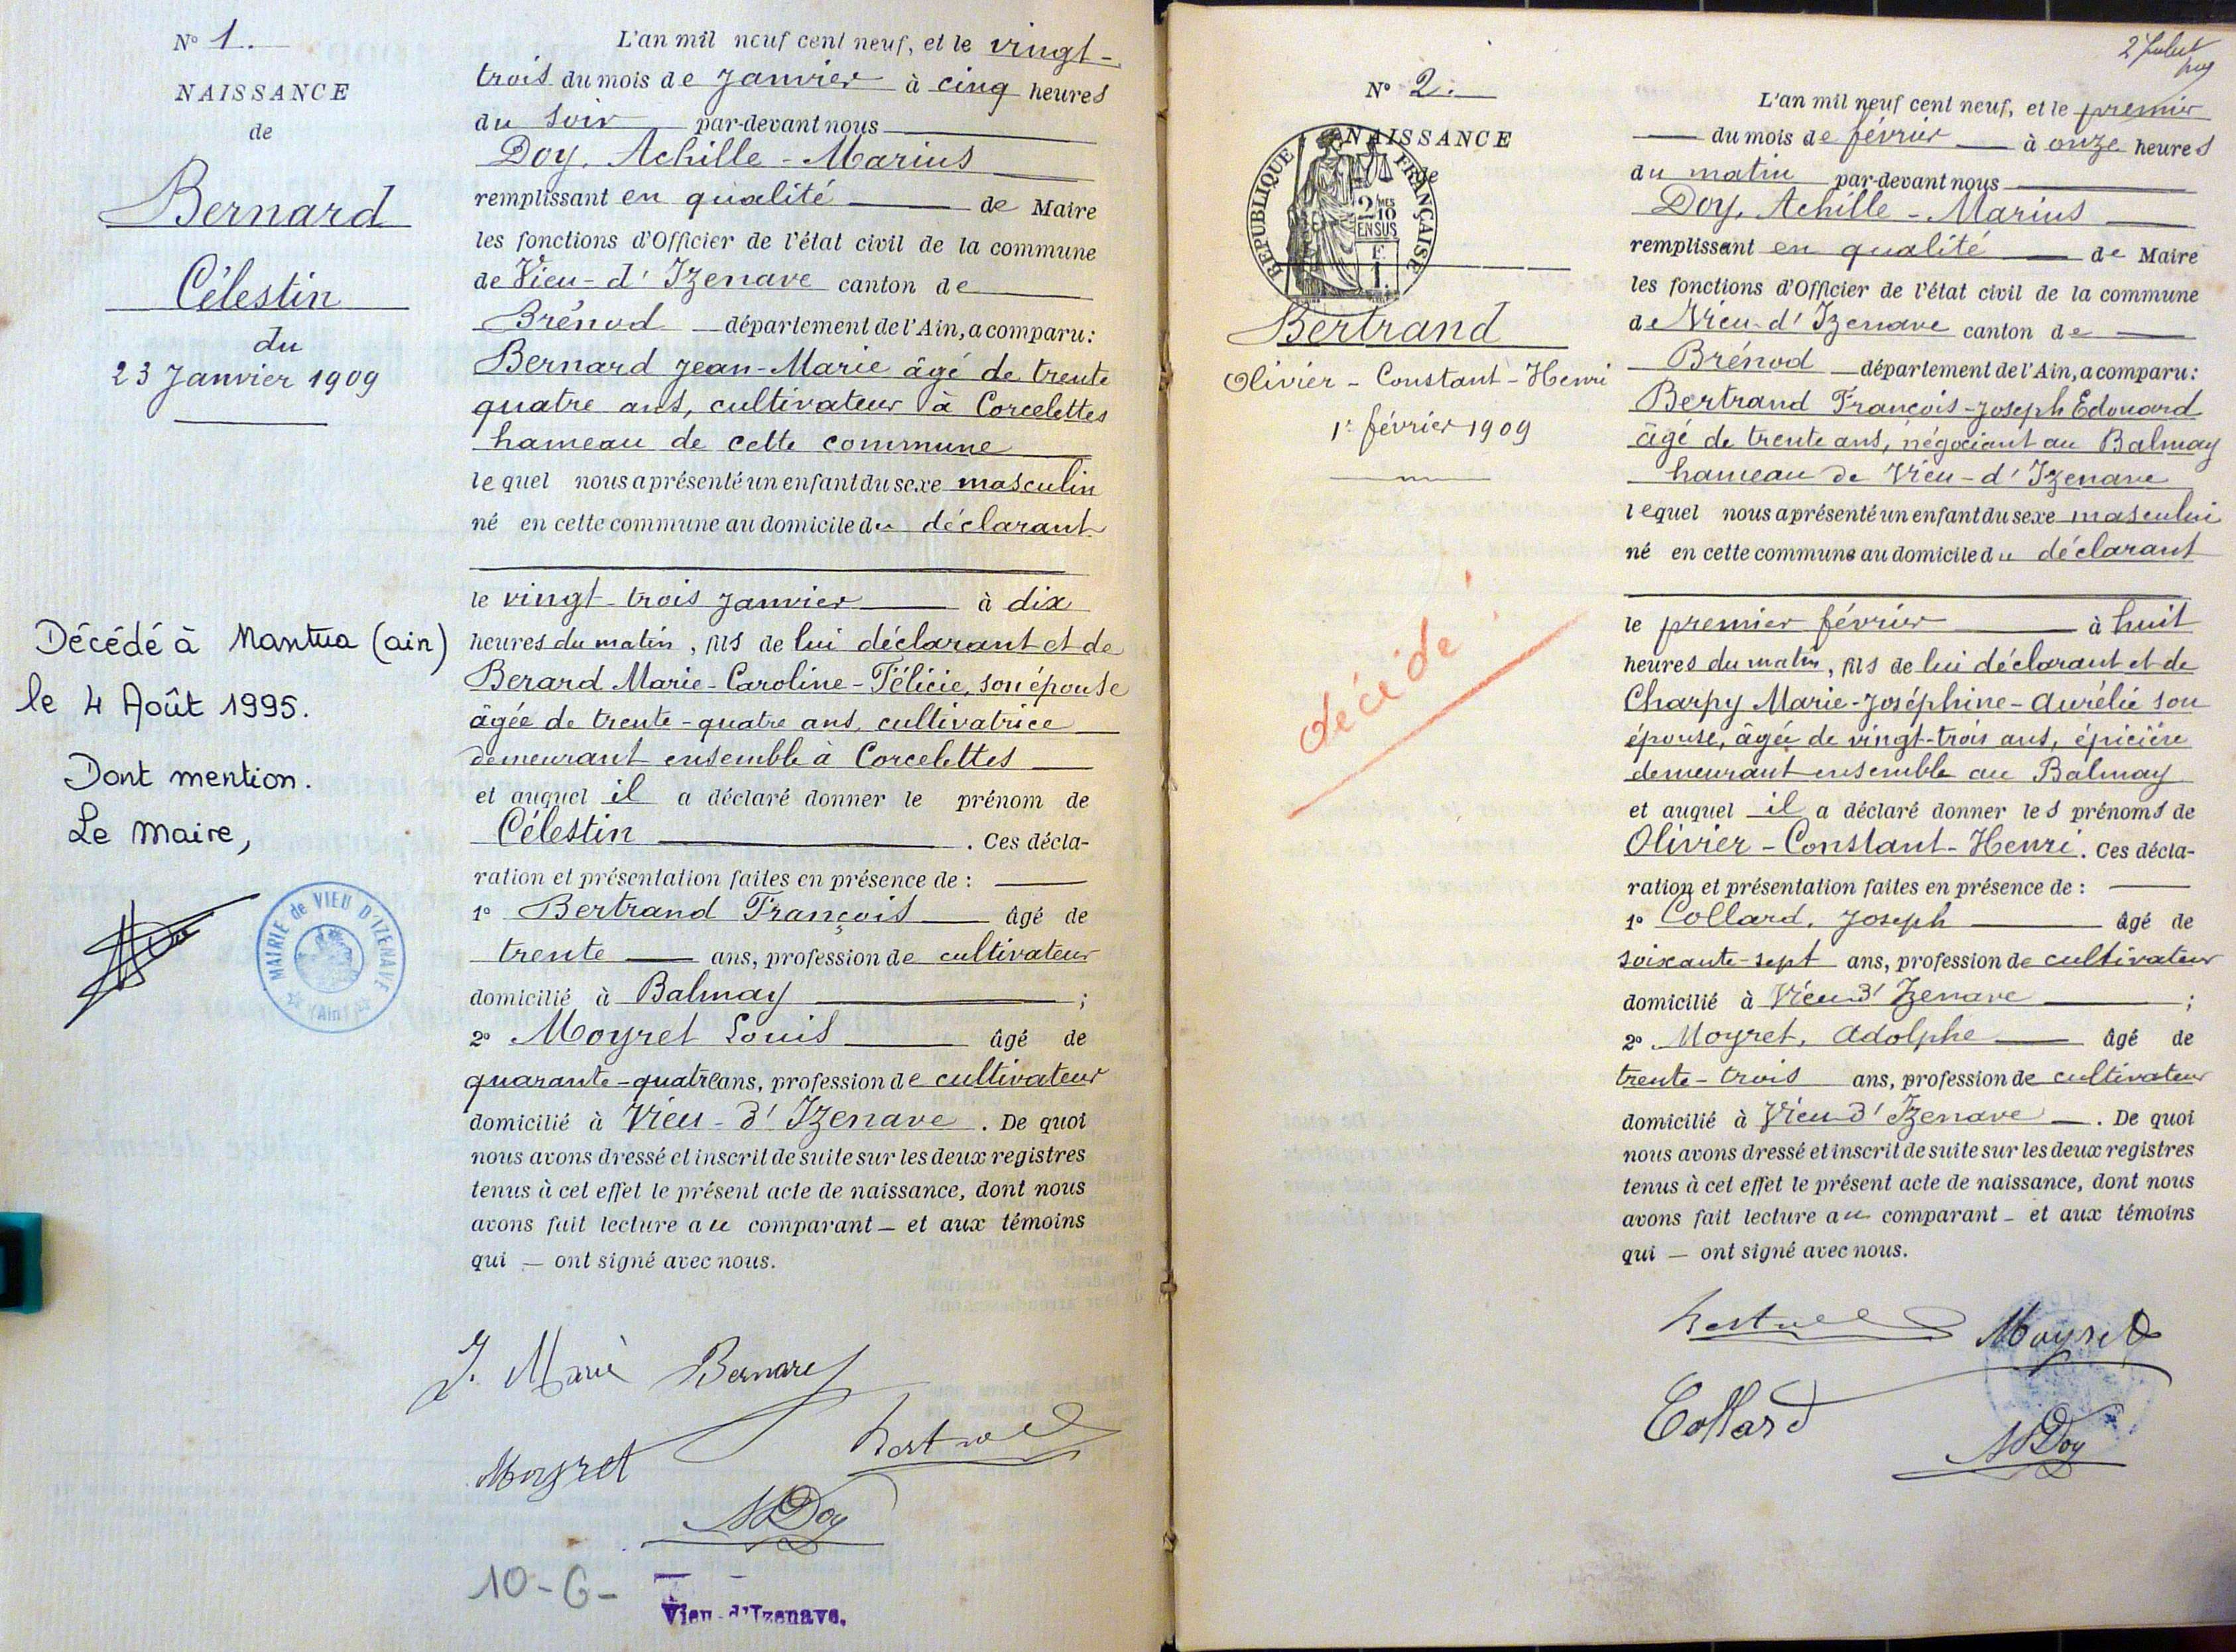 N° 1.
NAISSANCE
de
Bernard
Célestin
du
23 Janvier 1909
Décédé à Nantua (ain)
le 4 Août 1995.
Dont mention.
Le Maire,
MAIRIE de VIEU D'IZENAVE
(Ain)
L'an mil neuf cent neuf, et le vingt-
trois du mois de Janvier à cinq heures
du soir par-devant nous
Doy, Achille-Marius
remplissant en qualité de Maire
les fonctions d'Officier de l'état civil de la commune
de Vieu-d'Izenave canton de
Brénod département de l'Ain, a comparu:
Bernard Jean-Marie âgé de trente
quatre ans, cultivateur à Corcelettes
hameau de cette commune
lequel nous a présenté un enfant du sexe masculin
né en cette commune au domicile du déclarant
le vingt-trois Janvier à dix
heures du matin, fils de lui déclarant et de
Berard Marie-Caroline-Félicie, son épouse
âgée de trente-quatre ans, cultivatrice
demeurant ensemble à Corcelettes
et auquel il a déclaré donner le prénom de
Célestin. Ces décla-
ration et présentation faites en présence de :
1° Bertrand François âgé de
trente ans, profession de cultivateur
domicilié à Balmay ;
2° Moyret Louis âgé de
quarante-quatre ans, profession de cultivateur
domicilié à Vieu-d'Izenave. De quoi
nous avons dressé et inscrit de suite sur les deux registres
tenus à cet effet le présent acte de naissance, dont nous
avons fait lecture au comparant - et aux témoins
qui - ont signé avec nous.
J. Marie Bernard
Moyret
ADoy
10-G-
Vieu-d'Izenave.
N° 2.
NAISSANCE
de
RÉPUBLIQUE FRANÇAISE
2/10 MES
EN SUS
Bertrand
Olivier-Constant-Henri
1er février 1909
décédé
2 Juillet
L'an mil neuf cent neuf, et le premier
du mois de février à onze heures
du matin par-devant nous
Doy, Achille-Marius
remplissant en qualité de Maire
les fonctions d'Officier de l'état civil de la commune
de Vieu-d'Izenave canton de
Brénod département de l'Ain, a comparu:
Bertrand François-Joseph Edouard
âgé de trente ans, négociant au Balmay
hameau de Vieu-d'Izenave
lequel nous a présenté un enfant du sexe masculin
né en cette commune au domicile du déclarant
le premier février à huit
heures du matin, fils de lui déclarant et de
Charpy Marie-Joséphine-Aurélie son
épouse, âgée de vingt-trois ans, épicière
demeurant ensemble au Balmay
et auquel il a déclaré donner les prénoms de
Olivier-Constant-Henri. Ces décla-
ration et présentation faites en présence de :
1° Collard, Joseph âgé de
soixante-sept ans, profession de cultivateur
domicilié à Vieu d'Izenave ;
2° Moyret, Adolphe âgé de
trente-trois ans, profession de cultivateur
domicilié à Vieu d'Izenave. De quoi
nous avons dressé et inscrit de suite sur les deux registres
tenus à cet effet le présent acte de naissance, dont nous
avons fait lecture au comparant - et aux témoins
qui - ont signé avec nous.
Moyret
Collard
ADoy